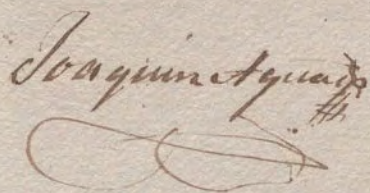 Joaquin Aguado